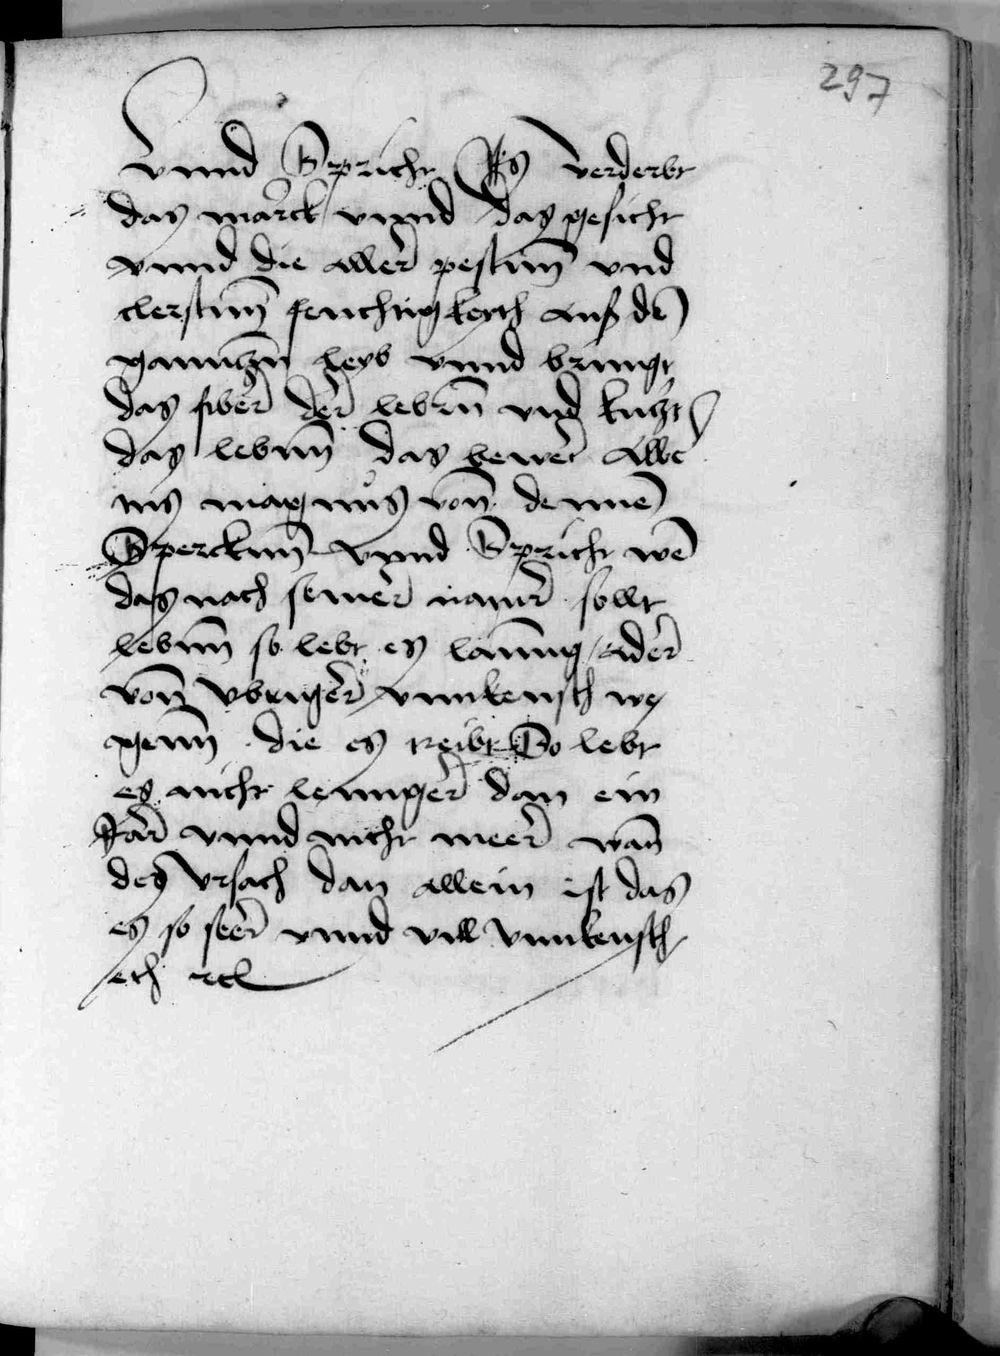 297
vnnd Spricht Es verderbt
das marck vnnd das gesicht
vnnd die aller pestinn vnd
clerstinn feuchtigkeyth auß dē
ganntzn leyb vnnd bringt
das fiber der lebrn vnd kurtzt
das lebnn das bewert Alber
tus magnus von dennē
Spercknn vnnd Spricht wē
das nach seiner natur sollt
lebnn so lebt es lanng Aber
von vbriger vnnkeusch we
genn die es treibt So lebt
es nicht lennger dan ein
Jar vnnd nicht meer wan
des vrsach dan allein ist das
es so seer vnnd vill vnnkeusch
et etc